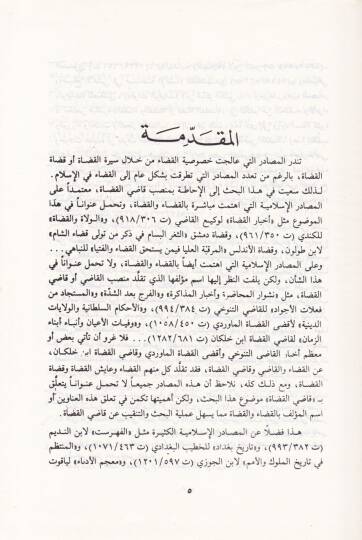 المقدّمة
تندر المصادر التي عالجت خصوصية القضاء من خلال سيرة القضاة أو قضاة
القضاة، بالرغم من تعدد المصادر التي تطرقت بشكل عام إلى القضاء في الإسلام.
لذلك سعيت في هذا البحث إلى الإحاطة بمنصب قاضي القضاة، معتمداً على
المصادر الإسلامية التي اهتمت مباشرة بالقضاء والقضاة، وتحمل عنواناً في هذا
الموضوع مثل «أخبار القضاة» لوكيع القاضي (ت ٣٠٦/٩١٨)، و«الولاة والقضاة»
للكندي (ت ٣٥٠/٩٦١)، وقضاة دمشق «الثغر البسام في ذكر من تولى قضاء الشام»
لابن طولون، وقضاة الأندلس «المرقبة العليا فيمن يستحق القضاء والفتيا» للنباهي...
وعلى المصادر الإسلامية التي اهتمت أيضاً بالقضاء والقضاة، ولا تحمل عنواناً في
هذا الشأن، ولكن يلفت النظر إليها اسم مؤلفها الذي تقلّد منصب القاضي أو قاضي
القضاة، مثل «نشوار المحاضرة وأخبار المذاكرة» و«الفرج بعد الشدّة» و«المستجاد من
فعلات الأجواد» للقاضي التنوخي (ت ٣٨٤/٩٩٤)، و«الأحكام السلطانية والولايات
الدينية» لأقضى القضاة الماوردي (ت ٤٥٠/١٠٥٨)، و«وفيات الأعيان وأنباء أبناء
الزمان» لقاضي القضاة ابن خلكان (ت ٦٨١/١٢٨٢)... فلا غرو أن تأتي بعض أو
معظم أخبار القاضي التنوخي وأقضى القضاة الماوردي وقاضي القضاة ابن خلكان،
عن القضاء والقاضي وقاضي القضاة، فقد تقلّد كل منهم القضاء وعايش القضاة وقضاة
القضاة، ومع ذلك كله، نلاحظ أن هذه المصادر جميعاً لا تحمل عنواناً يتعلّق
بـ «قاضي القضاة» موضوع هذا البحث، ولكن أهميتها تكمن في تعلق هذه العناوين أو
اسم المؤلف بالقضاء والقضاة مما يسهل عملية البحث والتنقيب عن قاضي القضاة.
هذا فضلاً عن المصادر الإسلامية الكثيرة مثل «الفهرست» لابن النديم
(ت ٣٨٢/٩٩٣)، و«تاريخ بغداد» للخطيب البغدادي (ت ٤٦٣/١٠٧١)، و«المنتظم
في تاريخ الملوك والأمم» لابن الجوزي (ت ٥٩٧/١٢٠١)، و«معجم الأدباء» لياقوت
٥